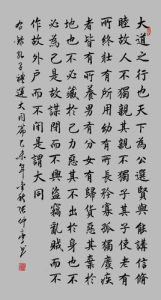 大道之行也天下為公選賢與能講信修
睦故人不獨親其親不獨子其子使老有
所終壯有所用幼有所長矜寡孤獨廢疾
者皆有所養男有分女有歸貨惡其棄於
地也不必藏於己力惡其不出於身也不
必為己是故謀閉而不興盜竊亂賊而不
作故外戶而不閉是謂大同
孔子禮運大同篇